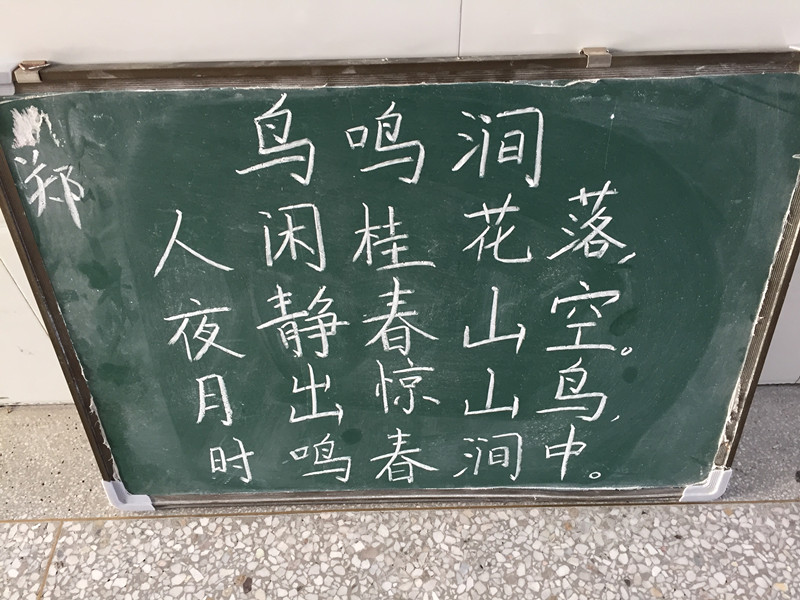 鸟鸣涧
郑
人闲桂花落，
夜静春山空。
月出惊山鸟，
时鸣春涧中。